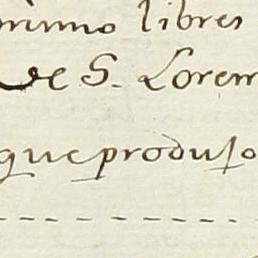 libres
de S. Loren
que produjo